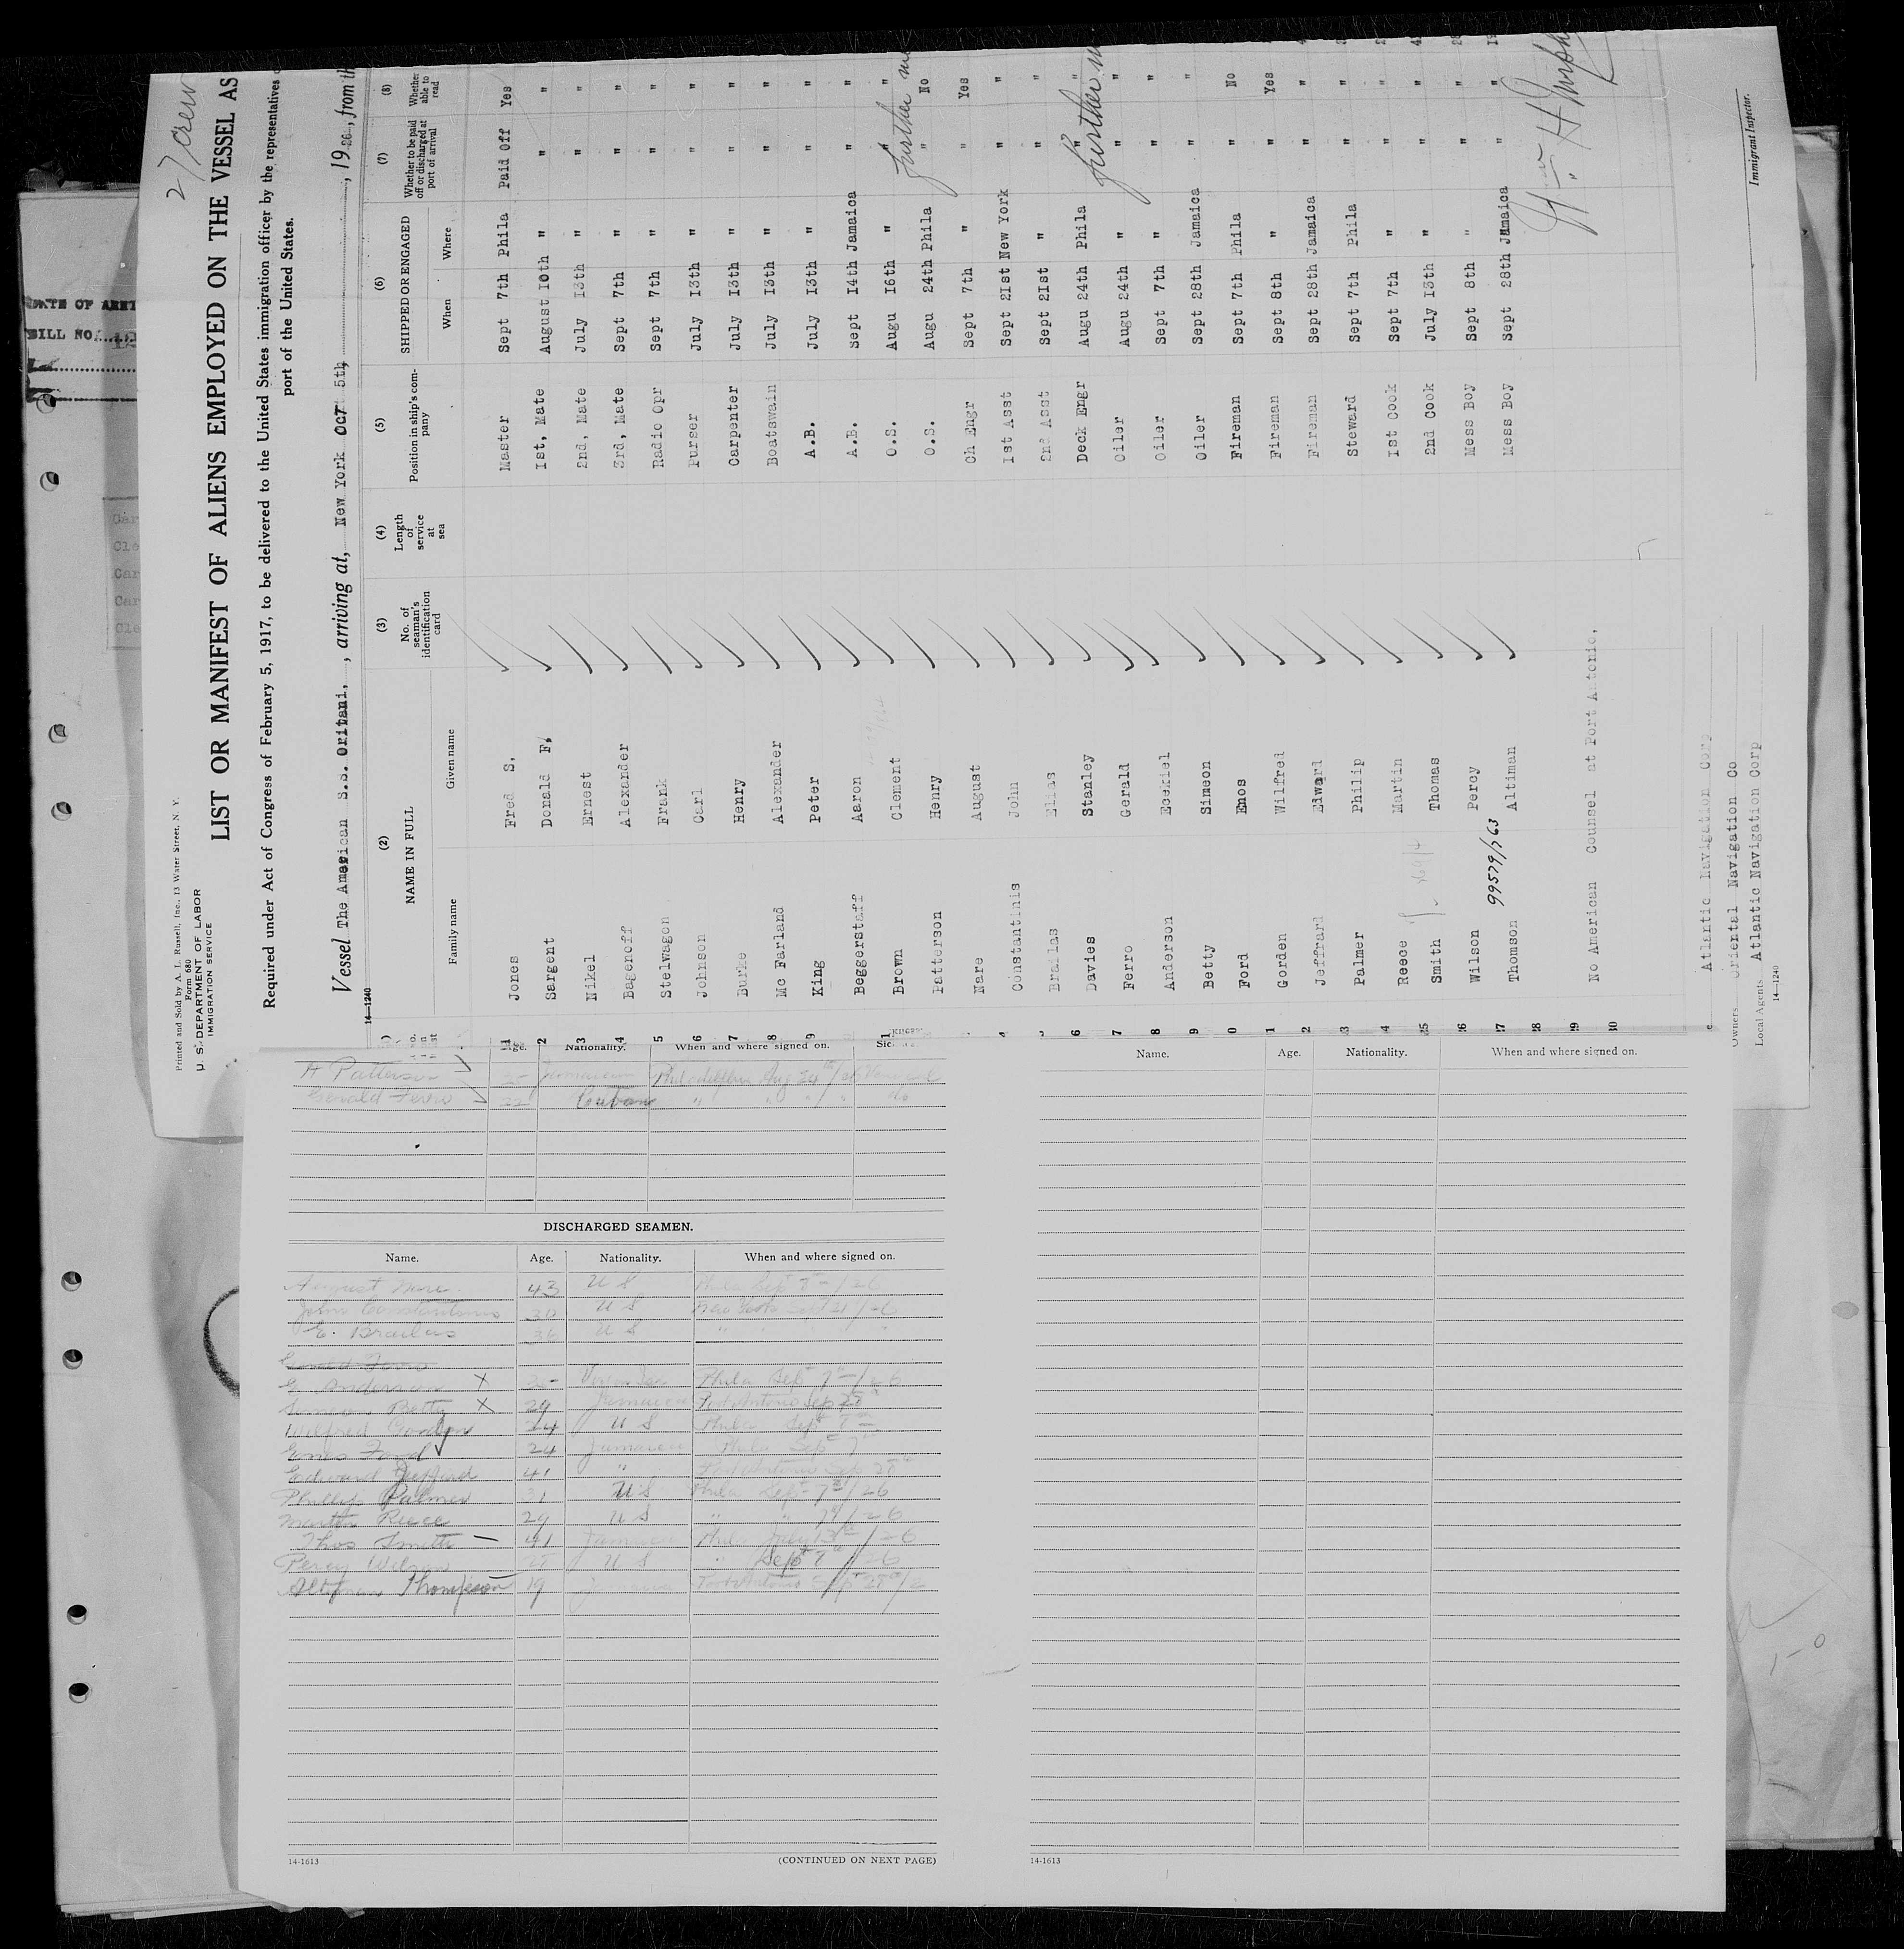 27 Crew
Printed and Sold by A. L. Russell, Inc., 13 Water Street, N. Y.
Form 680
U. S. DEPARTMENT OF LABOR
IMMIGRATION SERVICE
LIST OR MANIFEST OF ALIENS EMPLOYED ON THE VESSEL AS
Required under Act of Congress of February 5, 1917, to be delivered to the United States immigration officer by the representatives
port of the United States.
Vessel The American S.S. Oritani, , arriving at, New York Oct 5th, , 1926, from th
14—1240
(2) (3) (4) (5) (6) (7) (8)
NAME IN FULL No. of seaman's identification card Length of service at sea Position in ship's company SHIPPED OR ENGAGED Whether to be paid off or discharged at port of arrival Whether able to read
Family name Given name When Where
1 Jones Fred S. Master Sept 7th Phila Paid Off Yes
2 Sargent Donald F. 1st, Mate August 10th " " "
3 Nikel Ernest 2nd, Mate July 13th " " "
4 Bagenoff Alexander 3rd, Mate Sept 7th " " "
5 Stelwagon Frank Radio Opr Sept 7th " " "
6 Johnson Carl Purser July 13th " " "
7 Burke Henry Carpenter July 13th " " "
8 Mc Farland Alexander Boatswain July 13th " " "
9 King Peter A.B. July 13th " " "
Beggerstaff Aaron A.B. Sept 14th Jamaica " "
1 Brown Clement O.S. Augu 16th " " "
Patterson Henry O.S. Augu 24th Phila " No
further
Nare August Ch Engr Sept 7th " " Yes
Constantinis John 1st Asst Sept 21st New York " "
Brailas Elias 2nd Asst Sept 21st " "
6 Davies Stanley Deck Engr Augu 24th Phila " "
7 Ferro Gerald Oiler Augu 24th " " "
further
8 Anderson Ezekiel Oiler Sept 7th " " "
9 Betty Simeon Oiler Sept 28th Jamaica " "
0 Ford Enos Fireman Sept 7th Phila " No
1 Gorden Wilfred Fireman Sept 8th " " Yes
2 Jeffrard Edward Fireman Sept 28th Jamaica " "
3 Palmer Philip Steward Sept 7th Phila " "
4 Reece Martin 1st Cook Sept 7th " " "
25 Smith Thomas 2nd Cook July 13th " " "
26 Wilson Percy Mess Boy Sept 8th " " "
99579/763
27 Thomson Altiman Mess Boy Sept 28th Jamaica " "
28
29 No American Counsel at Port Antonio,
30
Immigrant Inspector.
Atlantic Navigation Corp
Owners Oriental Navigation Co
Local Agents Atlantic Navigation Corp
14—1240
DATE OF
BILL NO.
Age. Nationality. When and where signed on.
H Patterson Jamaican Philadelphia Aug 24th/26
Gerald Ferro 22 Cuban " " " "
DISCHARGED SEAMEN.
Name. Age. Nationality. When and where signed on.
August Nare 43 U S Phila Sept 7th/26
John Constantinis 30 U S New York Sept 21/26
E. Brailas 36 U S " " " "
E Anderson X Phila Sept 7th/26
Simeon Betty X 29 Jamaica Port Antonio Sep 28th
Wilfred Gordon 24 U S Phila Sept 8th
Enos Ford 24 Jamaica Phila Sept 7th
Edward Jeffrard 41 " Port Antonio Sep 28th
Phillip Palmer 31 U S Phila Sept 7th/26
Martin Reece 29 U S " " 7th/26
Thos Smith — 41 Jamaica Phila July 13th/26
Percy Wilson 28 U S " Sept 8th/26
Altiman Thompson 19 Jamaica Port Antonio Sept 28th/2
14-1613 (CONTINUED ON NEXT PAGE)
Name. Age. Nationality. When and where signed on.
14-1613